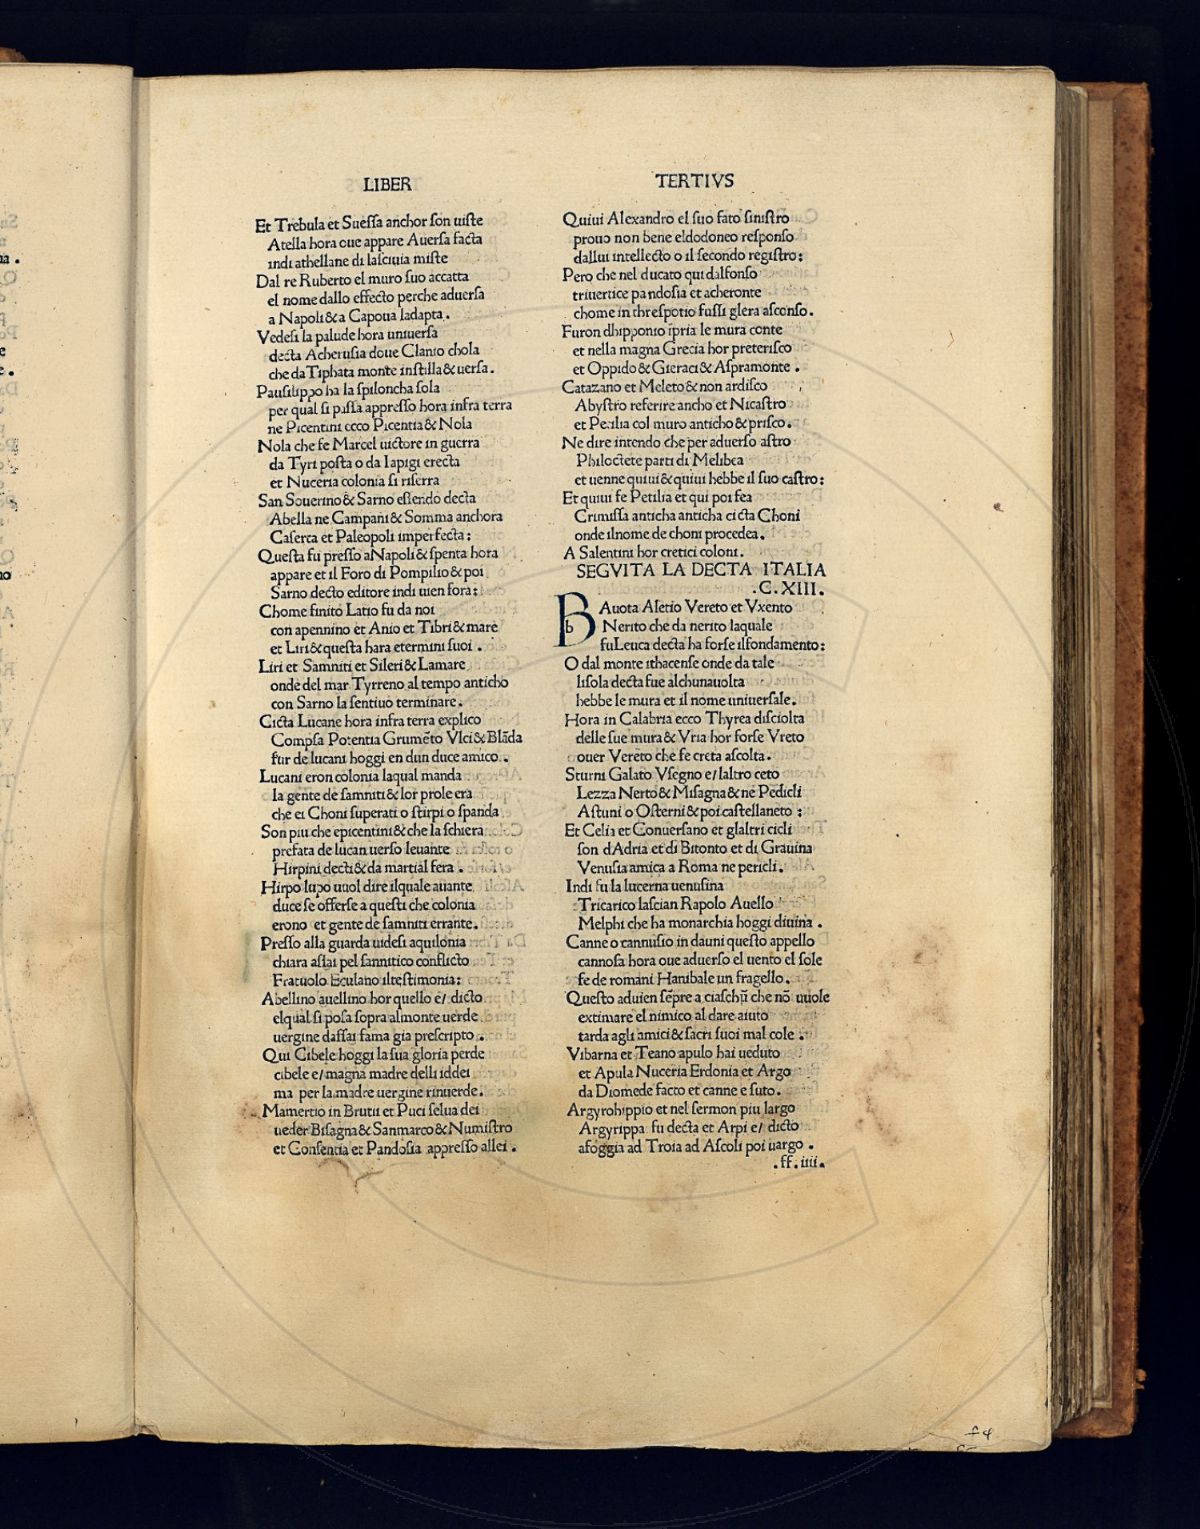 LIBER
Et Trebula et Suessa anchor son uiste
Atella hora oue appare Auersa facta
indi athellane di lasciuia miste
Dal re Ruberto el muro suo accatta
el nome dallo effecto perche aduersa
a Napoli & a Capoua ladapta.
Vedesi la palude hora uniuersa
decta Acherusia doue Clanio chola
che da Tiphata monte instilla & uersa.
Pausilippo ha la spiloncha sola
per qual si passa appresso hora infra terra
ne Picentini ecco Picentia & Nola
Nola che fe Marcel uictore in guerra
da Tyri posta o da Iapigi erecta
et Nuceria colonia si riserra
San Souerino & Sarno essendo decta
Abella ne Campani & Somma anchora
Caserca et Paleopoli imperfecta:
Questa fu presso aNapoli & spenta hora
appare et il Foro di Pompilio & poi
Sarno decto editore indi uien fora:
Chome finito Latio fu da noi
con apennino et Anio et Tibri & mare
et Liri & questa hara etermini suoi.
Liri et Samniti et Sileri & Lamare
onde del mar Tyrreno al tempo anticho
con Sarno la sentiuo terminare.
Cicta Lucane hora infra terra explico
Compsa Potentia Grumēto Vlci & Blāda
fur de lucani hoggi en dun duce amico.
Lucani eron colonia laqual manda
la gente de samniti & lor prole era
che ei Choni superati o stirpi o spanda
Son piu che epicentini & che la schiera
prefata de lucan uerso leuante
Hirpini decti & da martial fera.
Hirpo lupo uuol dire ilquale auante
duce se offerse a questi che colonia
erono et gente de samniti errante.
Presso alla guarda uidesi aquilonia
chiara assai pel sannitico conflicto
Fratuolo Eculano iltestimonia:
Abellino auellino hor quello e/ dicto
elqual si posa sopra almonte uerde
uergine dassai fama gia prescripto.
Qui Cibele hoggi la sua gloria perde
cibele e/ magna madre delli iddei
ma per la madre uergine rinuerde.
Mamertio in Brutii et Puci selua dei
ueder Bisagna & Sanmarco & Numistro
et Consentia et Pandosia appresso allei.
TERTIVS
Quiui Alexandro el suo fato sinistro
prouo non bene eldodoneo responso
dallui intellecto o il secondo registro:
Pero che nel ducato qui dalfonso
triuertice pandosia et acheronte
chome in threspotio fussi glera asconso.
Furon dhipponio ipria le mura conte
et nella magna Grecia hor preterisco
et Oppido & Gieraci & Aspramonte.
Catazano et Meleto & non ardisco
Abystro referire ancho et Nicastro
et Petilia col muro anticho & prisco.
Ne dire intendo che per aduerso astro
Philoctete parti di Melibea
et uenne quiui & quiui hebbe il suo castro:
Et quiui fe Petilia et qui poi fea
Crimissa anticha anticha cicta Choni
onde ilnome de choni procedea.
A Salentini hor cretici coloni.
SEGVITA LA DECTA ITALIA
.C.XIII.
BAuota Aletio Vereto et Vxento
b Nerito che da nerito laquale
fuLeuca decta ha forse ilfondamento:
O dal monte ithacense onde da tale
lisola decta fue alchunauolta
hebbe le mura et il nome uniuersale.
Hora in Calabria ecco Thyrea disciolta
delle sue mura & Vria hor forse Vreto
ouer Vereto che fe creta ascolta.
Sturni Galato Vsegno e/ laltro ceto
Lezza Nerto & Misagna & ne Pedicli
Astuni o Osterni & poi castellaneto:
Et Celia et Conuersano et glaltri cicli
son dAdria et di Bitonto et di Grauina
Venusia amica a Roma ne pericli.
Indi fu la lucerna uenusina
Tricarico lascian Rapolo Auello
Melphi che ha monarchia hoggi diuina.
Canne o cannusio in dauni questo appello
cannosa hora oue aduerso el uento el sole
fe de romani Hanibale un fragello.
Questo aduien sēpre a ciaschū che nō uuole
extimare el nimico al dare aiuto
tarda agli amici & sacri suoi mal cole.
Vibarna et Teano apulo hai ueduto
et Apula Nuceria Erdonia et Argo
da Diomede facto et canne e suto.
Argyrohippio et nel sermon piu largo
Argyrippa fu decta et Arpi e/ dicto
afoggia ad Troia ad Ascoli poi uargo.
.ff.iiii.
f4